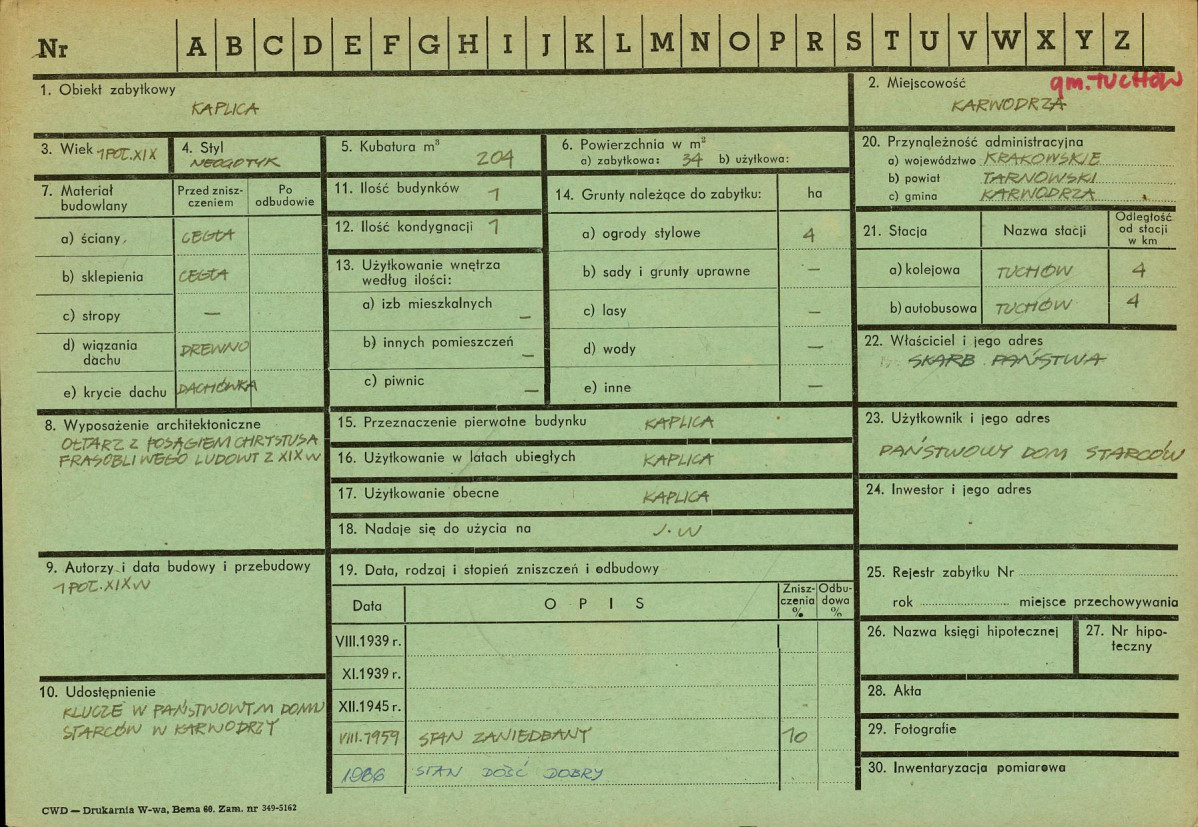 Nr A B C D E F G H I J K L M N O P R S T U V W X Y Z
1. Obiekt zabytkowy
KAPLICA
2. Miejscowość
gm. TUCHÓW
KARWODRZA
3. Wiek 1 POŁ. XIX
4. Styl
NEOGOTYK
5. Kubatura m³ 204
6. Powierzchnia w m²
a) zabytkowa: 34 b) użytkowa:
20. Przynależność administracyjna
a) województwo KRAKOWSKIE
b) powiat TARNOWSKI
c) gmina KARWODRZA
7. Materiał budowlany
Przed znisz-
czeniem
Po
odbudowie
a) ściany CEGŁA
b) sklepienia CEGŁA
c) stropy —
d) wiązania
dachu DREWNO
e) krycie dachu DACHÓWKA
11. Ilość budynków 1
12. Ilość kondygnacji 1
13. Użytkowanie wnętrza
według ilości:
a) izb mieszkalnych —
b) innych pomieszczeń —
c) piwnic —
14. Grunty należące do zabytku: ha
a) ogrody stylowe 4
b) sady i grunty uprawne —
c) lasy —
d) wody —
e) inne —
21. Stacja Nazwa stacji
Odległość
od stacji
w km
a) kolejowa TUCHÓW 4
b) autobusowa TUCHÓW 4
22. Właściciel i jego adres
SKARB PAŃSTWA
8. Wyposażenie architektoniczne
OŁTARZ Z POSĄGIEM CHRYSTUSA
FRASOBLIWEGO LUDOWY Z XIX W
15. Przeznaczenie pierwotne budynku KAPLICA
16. Użytkowanie w latach ubiegłych KAPLICA
17. Użytkowanie obecne KAPLICA
18. Nadaje się do użycia na J. W
23. Użytkownik i jego adres
PAŃSTWOWY DOM STARCÓW
24. Inwestor i jego adres
9. Autorzy i data budowy i przebudowy
1 POŁ. XIX W
19. Data, rodzaj i stopień zniszczeń i odbudowy
Data OPIS
Znisz-
czenia
%
Odbu-
dowa
%
VIII.1939 r.
XI.1939 r.
XII.1945 r.
VIII.1959 STAN ZANIEDBANY 10
1966 STAN DOŚĆ DOBRY
25. Rejestr zabytku Nr
rok miejsce przechowywania
26. Nazwa księgi hipotecznej
27. Nr hipo-
teczny
10. Udostępnienie
KLUCZE W PAŃSTWOWYM DOMU
STARCÓW W KARWODRZY
28. Akta
29. Fotografie
30. Inwentaryzacja pomiarowa
CWD — Drukarnia W-wa, Bema 60. Zam. nr 349-5162